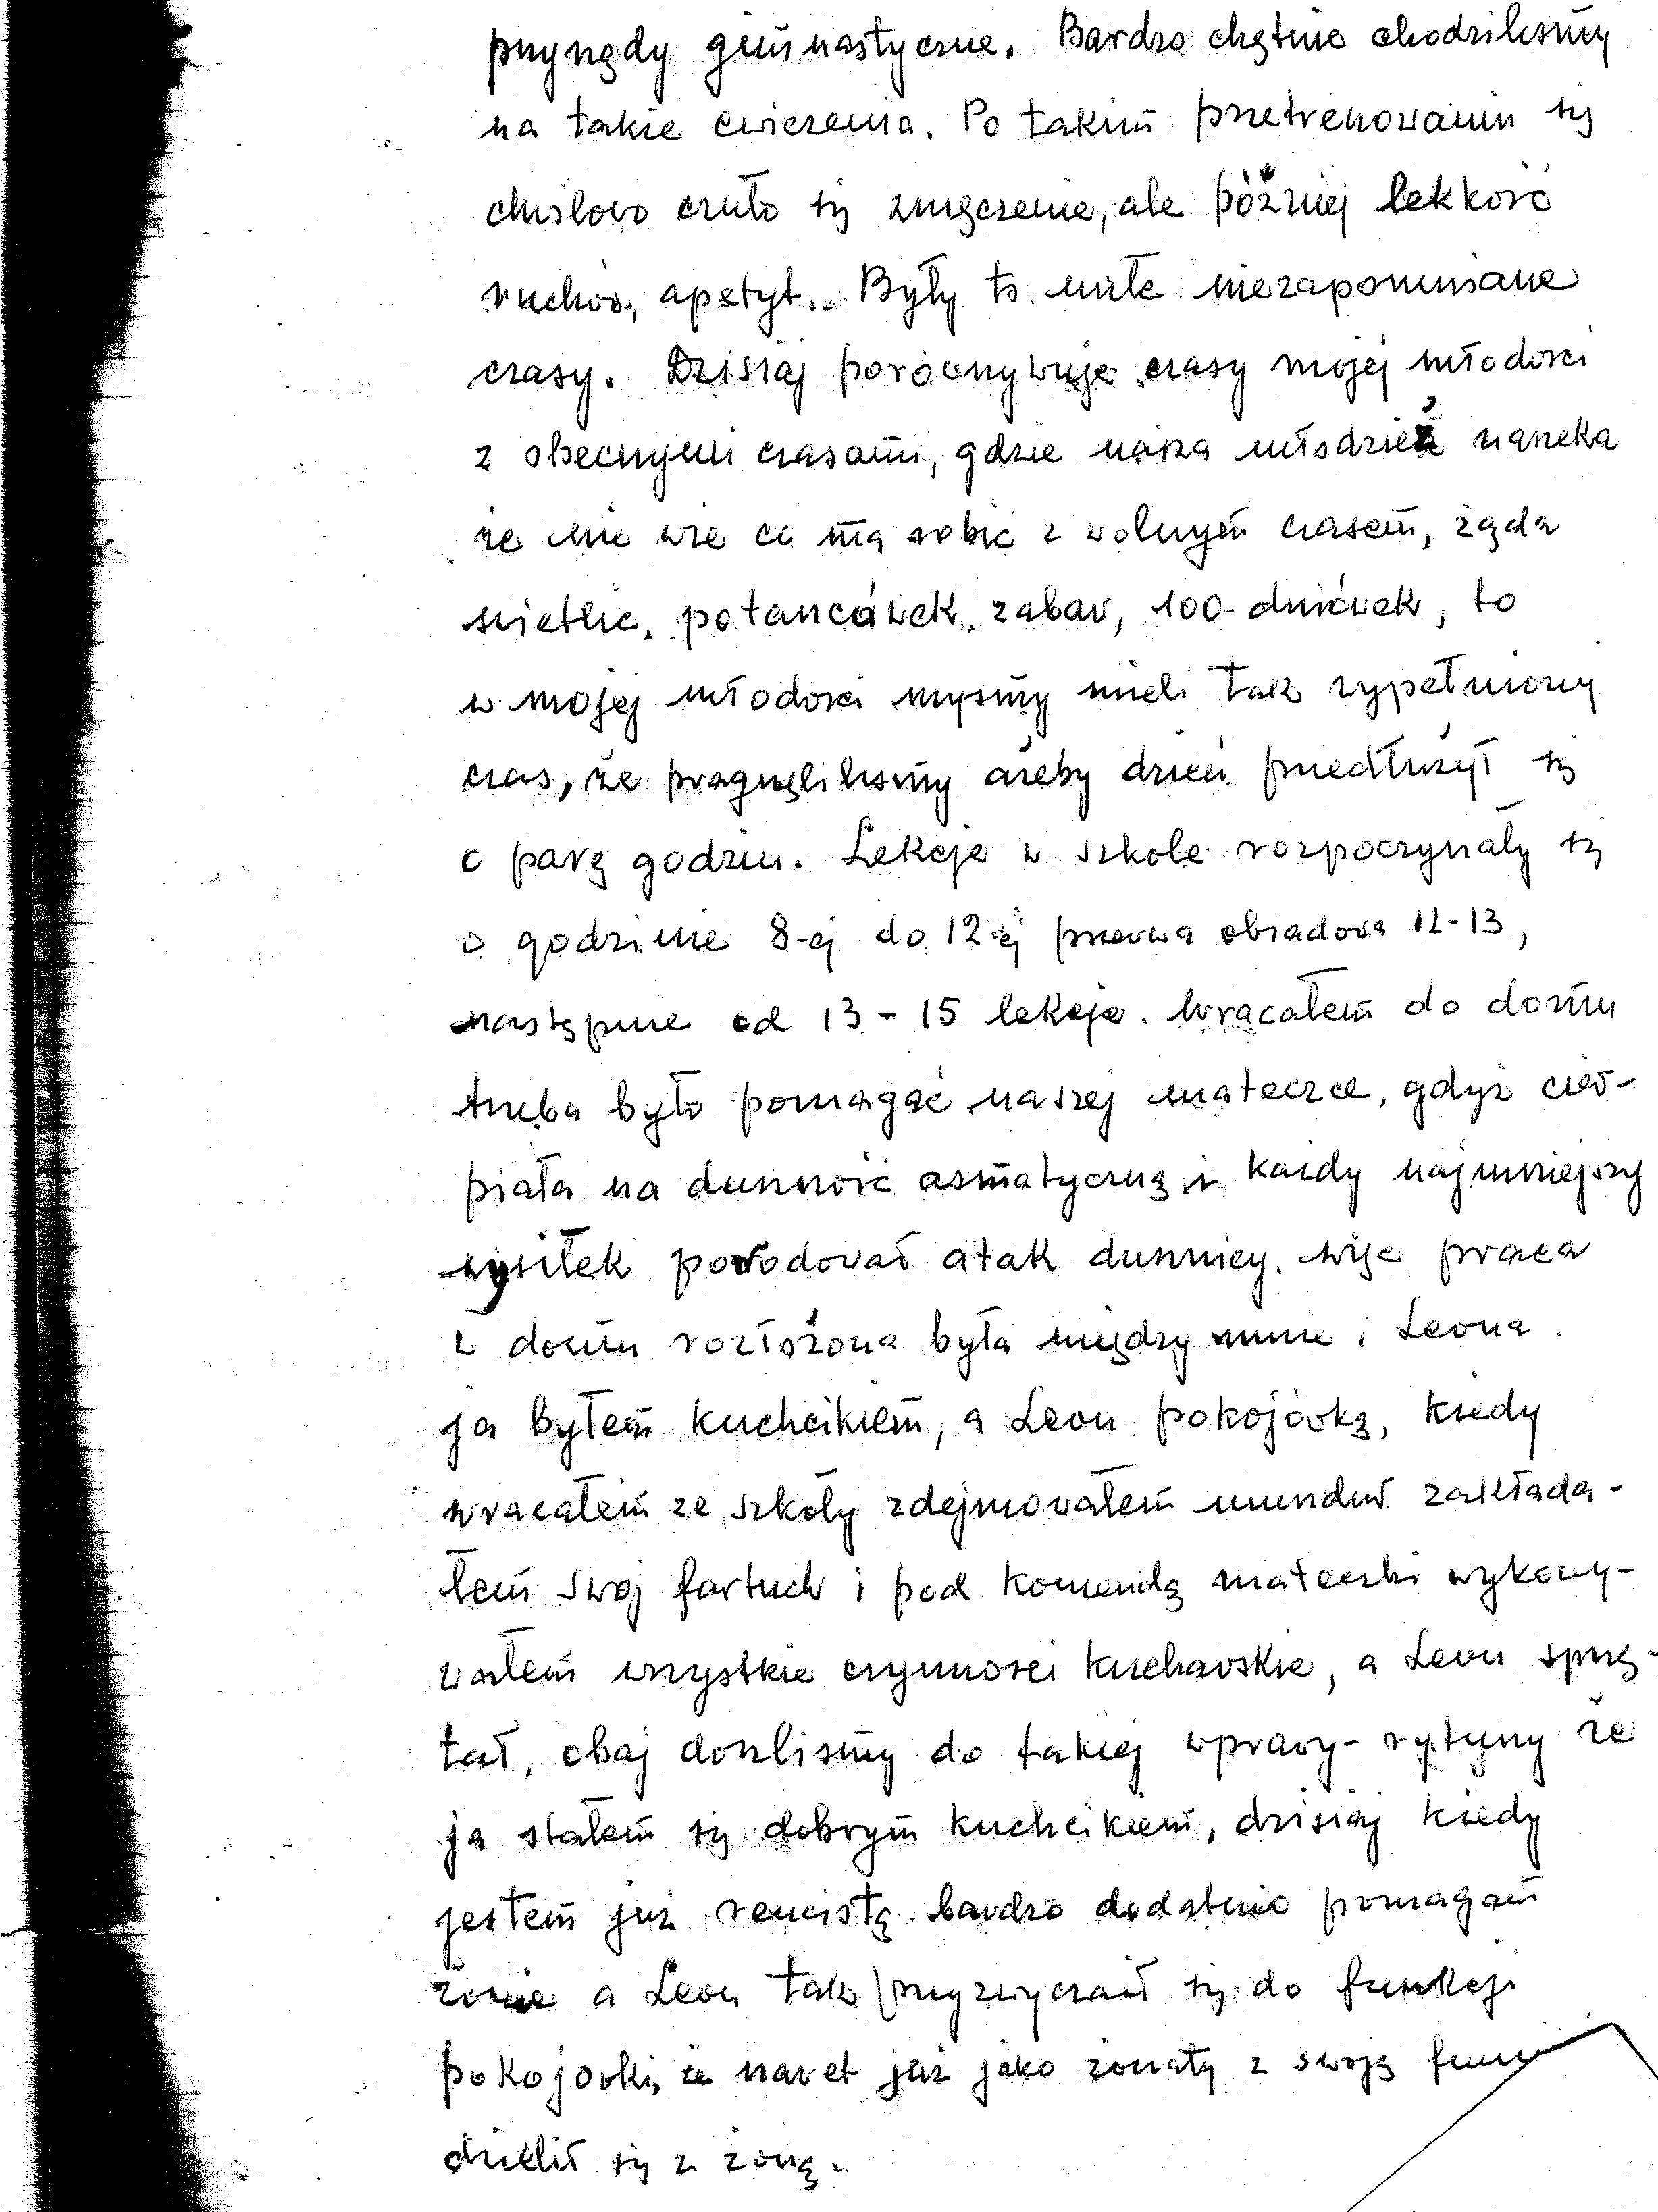 przyrządy gimnastyczne. Bardzo chętnie chodziliśmy
na takie ćwiczenia. Po takim przetrenowaniu się
chwilowo czuło się zmęczenie, ale później lekkość
ruchów, apetyt. Były to miłe niezapomniane
czasy. Dzisiaj porównywuję czasy mojej młodości
z obecnymi czasami, gdzie nasza młodzież narzeka
że nie wie co ma robić z wolnym czasem, żąda
świetlic, potańcówek, zabaw, 100-dniówek, to
w mojej młodości myśmy mieli tak wypełniony
czas, że pragnęliliśmy ażeby dzień przedłużył się
o parę godzin. Lekcje w szkole rozpoczynały się
o godzinie 8-ej do 12-ej przerwa obiadowa 12-13,
następnie od 13-15 lekcje. Wracałem do domu
trzeba było pomagać naszej mateczce, gdyż cier-
piała na duszność asmatyczną i każdy najmniejszy
wysiłek powodował atak dusznicy, więc praca
w domu rozłożona była między mnie i Leona.
ja byłem kuchcikiem, a Leon pokojówką, kiedy
wracałem ze szkoły zdejmowałem mundur zakłada-
łem swój fartuch i pod komendą mateczki wykony-
wałem wszystkie czynności kucharskie, a Leon sprzą-
tał, obaj doszliśmy do takiej wprawy - rytyny że
ja stałem się dobrym kuchcikiem, dzisiaj kiedy
jestem już rencistą bardzo dodatnio pomagam
żonie a Leon tak przyzwyczaił się do funkcji
pokojówki, że nawet już jako żonaty z swoją
dzielił się z żoną.